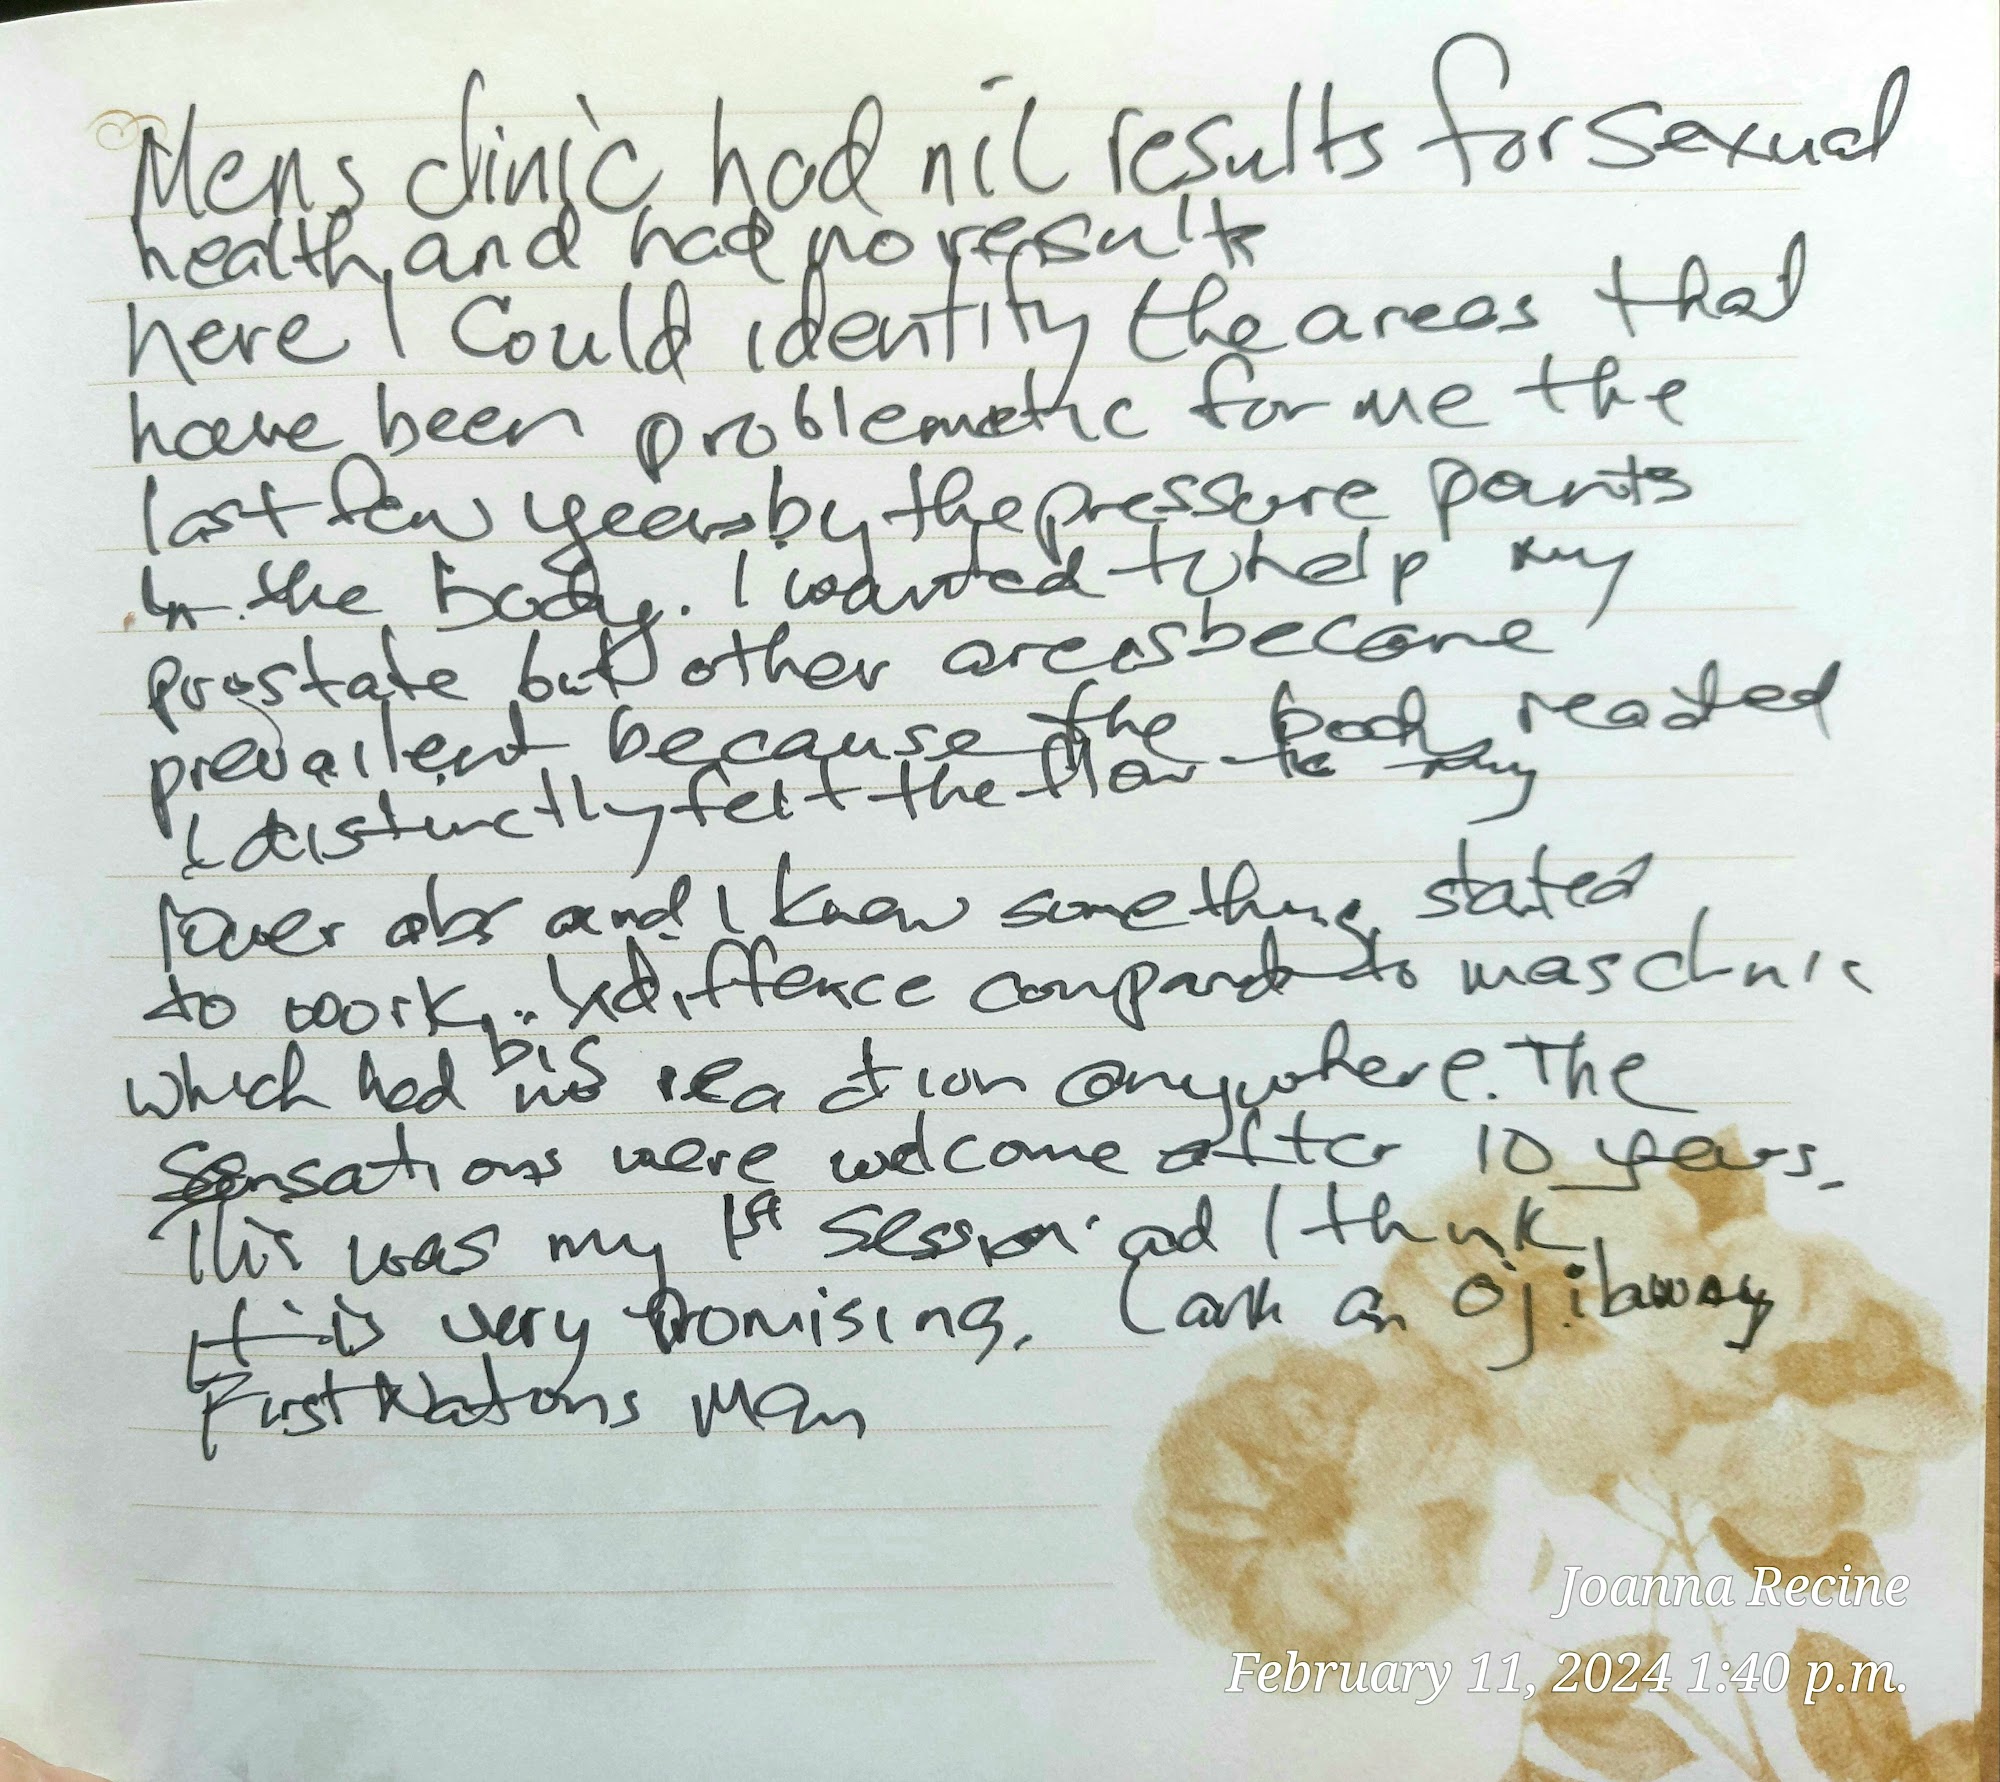 Mens clinic had nil results for sexual
health, and had no results
here I could identity the areas that
have been problematic for me the
last few years by the pressure points
in the body. I wanted to help my
prostate but other areas become
prevailent because the body reacted
I distinctly felt the flow to my
lower abs and I knew something stated
to work... diffence compared to mas clinic
which had no big reaction anywhere. The
Sensations were welcome after 10 years.
This was my 1st Session ad I think
It is very Promising. I am an Ojibaway
First Nations Man
Joanna Recine
February 11, 2024 1:40 p.m.